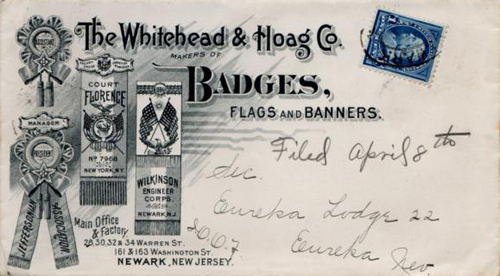 The Whitehead & Hoag Co.
MAKERS OF
BADGES,
FLAGS AND BANNERS.
ASSISTANT
MANAGER
PRESIDENT
JEFFERSONIAN
ASSOCIATION
COURT
FLORENCE
No 7968
NEW YORK, N.Y.
WILKINSON
ENGINEER
CORPS.
NEWARK, N.J.
Main Office
& Factory
28, 30, 32 & 34 WARREN ST.
161 & 163 WASHINGTON ST.
NEWARK, NEW JERSEY.
Filed April 8th
Sec.
Eureka Lodge 22
Eureka
Nev